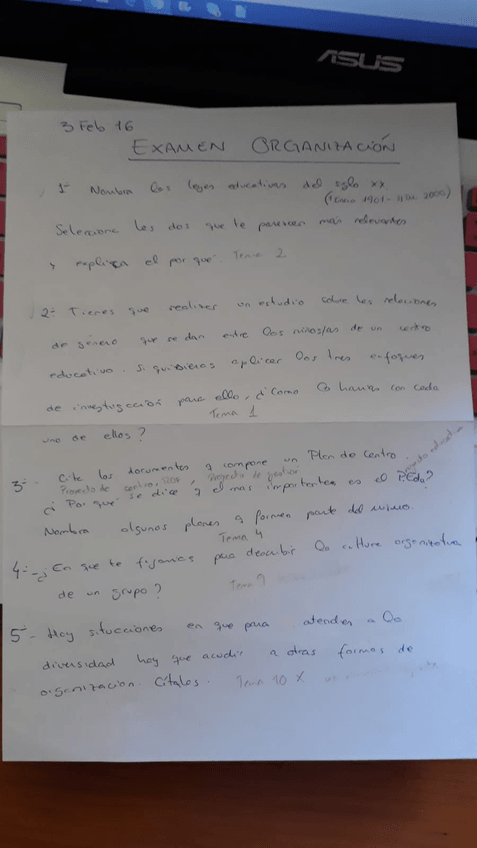 ASUS
3 Feb 16
EXAMEN ORGANIZACIÓN
1- Nombra las leyes educativas del siglo XX
(1 Enero 1901 - 2000)
Selecciona las dos que te parezcan más relevantes
y explica el por qué. Tema 2
2- Tienes que realizar un estudio sobre las relaciones
de género que se dan entre los niños/as de un centro
educativo. Si quisieras aplicar los tres enfoques
de investigación para ello, ¿Cómo lo harías con cada
Tema 1
uno de ellos?
3- Cita los documentos q compone un Plan de Centro.
Proyecto de , Proyecto de gestión Proyecto educativo
¿Por qué se dice q el más importante es el P.Edu?
Nombra algunos planes q formen parte del mismo.
Tema 4
4- ¿En que te fijarías para describir la cultura organizativa
de un grupo? Tema 9
5- Hay situaciones en que para atender a la
diversidad hay que acudir a otras formas de
organización. Cítalas. Tema 10 X